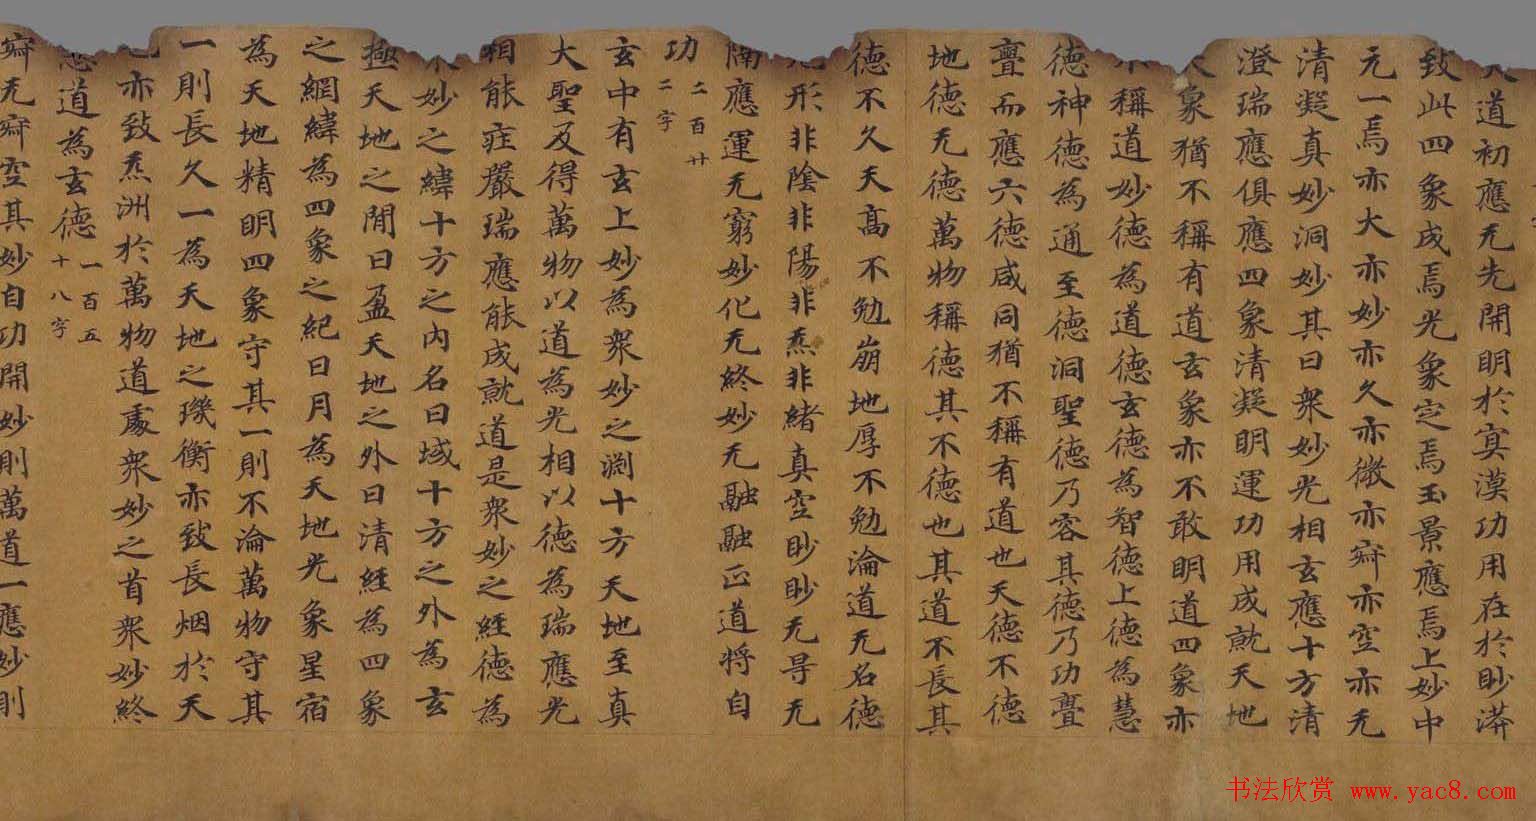 道初應无先開明於寘漠功用在於眇漭
致此四象成焉光象定焉玉景應焉上妙中
元一焉亦大亦妙亦久亦微亦寂亦空亦无
清凝真妙洞妙其曰衆妙光相玄應十方清
澄瑞應俱應四象清凝明運功用成就天地
象猶不稱有道玄象亦不敢明道四象亦
稱道妙德為道德玄德為智德上德為慧
德神德為通至德洞聖德乃容其德乃功亹
亹而應六德咸同猶不稱有道也天德不德
地德无德萬物稱德其不德也其道不長其
德不久天高不勉崩地厚不勉淪道无名德
形非陰非陽非炁非緒真空眇眇无㝵无
闇應運无窮妙化无終妙无融融正道將自
功 二百廿二字
玄中有玄上妙為衆妙之淵十方天地至真
大聖及得萬物以道為光相以德為瑞應光
相能庄嚴瑞應能成就道是衆妙之經德為
妙之緯十方之内名曰域十方之外為玄
極天地之間曰盈天地之外曰清經為四象
之綱緯為四象之紀日月為天地光象星宿
為天地精明四象守其一則不淪萬物守其
一則長久一為天地之璣衡亦致長烟於天
亦致炁洲於萬物道處衆妙之首衆妙終
道為玄德 一百五十八字
寂无寂空其妙自功開妙則萬道一應妙則
书法欣赏 www.yac8.com